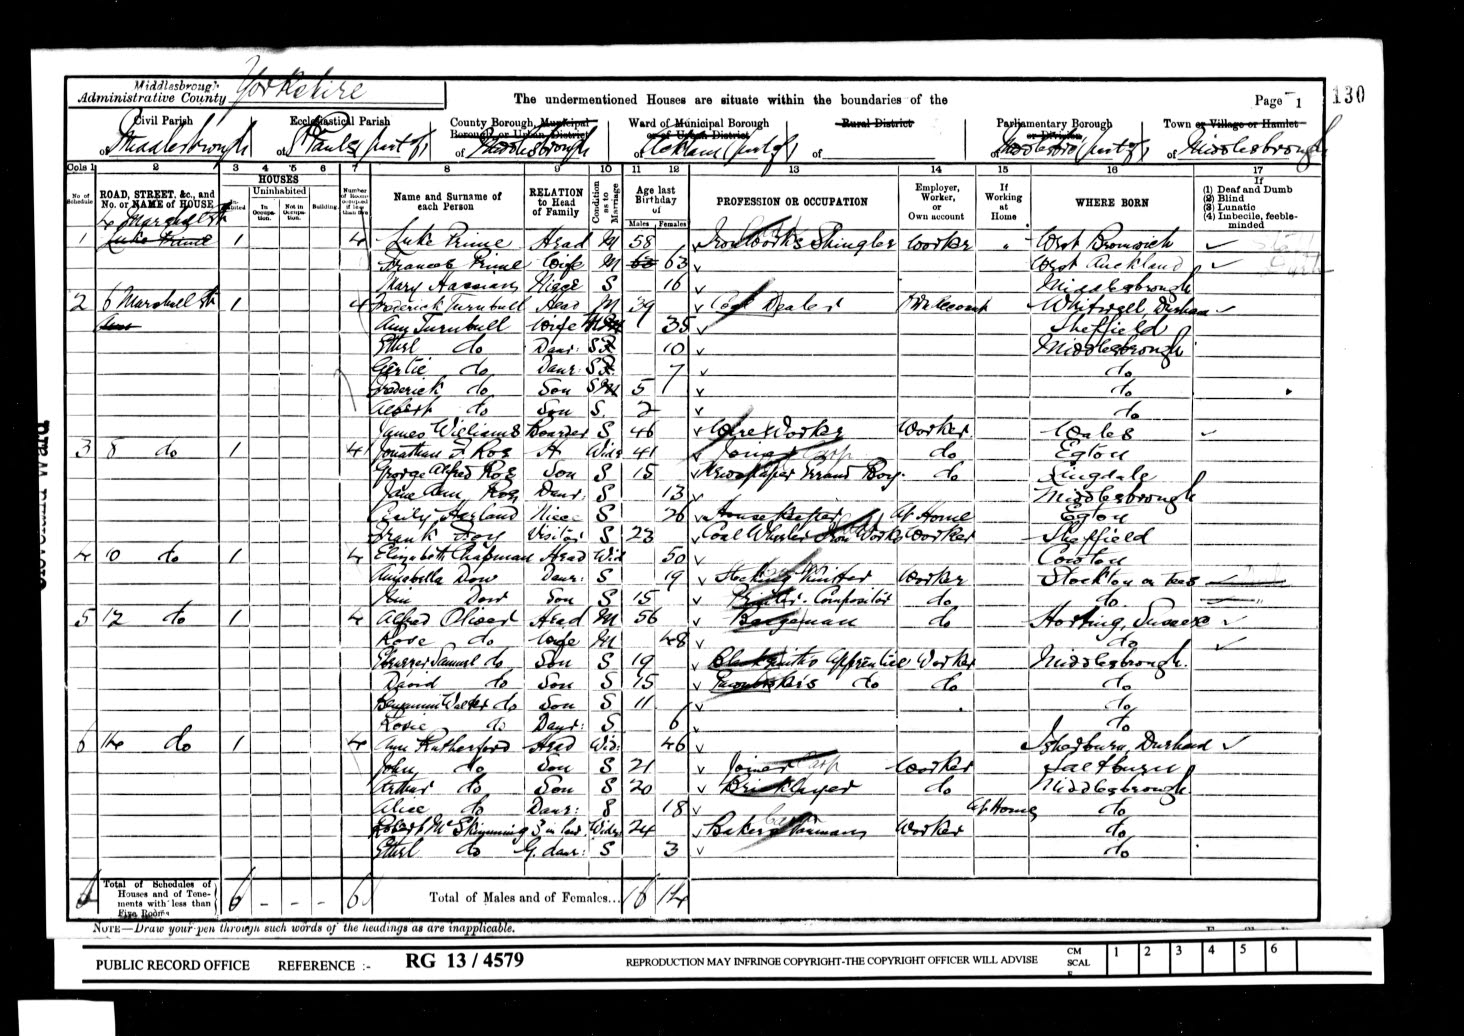 130
Middlesbrough
Administrative County Yorkshire
The undermentioned Houses are situate within the boundaries of the
Page 1
Civil Parish
of Middlesbrough
Ecclesiastical Parish
of St Pauls (part of)
County Borough, Municipal Borough or Urban District
of Middlesbrough
Ward of Municipal Borough or of Urban District
of (part of)
Rural District
of
Parliamentary Borough or Division
of Middlesbro (part of)
Town or Village or Hamlet
of Middlesbrough
Cols 1 2 3 4 5 6 7 8 9 10 11 12 13 14 15 16 17
No. of Schedule
ROAD, STREET, &c., and No. or NAME of HOUSE
HOUSES
Inhabited
Uninhabited
In Occupation
Not in Occupation
Building
Number of Rooms occupied if less than five
Name and Surname of each Person
RELATION to Head of Family
Condition as to Marriage
Age last Birthday of
Males Females
PROFESSION OR OCCUPATION
Employer, Worker, or Own account
If Working at Home
WHERE BORN
If (1) Deaf and Dumb (2) Blind (3) Lunatic (4) Imbecile, feeble-minded
4 Marshall St
1 Luke Prine 1 4 Luke Prine Head M 58 Ironworks Shingler Worker West Bromwich
Frances Prine Wife M 63 63 West Auckland
Mary Niece S 16 Middlesbrough
2 6 Marshall St 1 4 Frederick Turnbull Head M 39 Dealer Own Account Durham
Ann Turnbull Wife M 35 Sheffield
Ethel do Daur: S 10 Middlesbrough
Gertie do Daur: S 7 do
Frederick do Son S 5 do
Albert do Son S. 2 do
James Williams Boarder S 46 Worker Worker Wales
3 8 do 1 4 Jonathan Roe H Widr 41 do Egton
George Alfred Roe Son S 15 Newspaper Errand Boy do Lingdale
Jane Ann Roe Daur S 13 Middlesbrough
Emily Harland Niece S 26 Housekeeper At Home Egton
Frank Visitor S 23 Coal Wheeler Iron Works Worker Sheffield
4 10 do 1 4 Elizabeth Chapman Head Wid 50 Cowton
Annabella Dow Daur: S 19 Stocking Knitter Worker Stockton on Tees
Dow Son S 15 Printer Compositor do do
5 12 do 1 4 Alfred Oliver Head M 56 Bargeman do Sussex
Rose do Wife M 48 do
Ebenezer Samuel do Son S 19 Blacksmiths Apprentice Worker Middlesbrough.
David do Son S 15 Pawnbrokers do do do
Benjamin Walter do Son S 11 do
Rosie do Daur: S 6 do
6 14 do 1 4 Ann Rutherford Head Wid: 46 Sherburn, Durham
John do Son S 21 Joiner Worker Saltburn
Arthur do Son S 20 Bricklayer do Middlesbrough
Alice do Daur: S 18 At Home do
Robert McSkimming S in law Widr 24 Bakers Vanman Worker do
Ethel do G. daur: S 3 do
6 Total of Schedules of Houses and of Tenements with less than Five Rooms 6 - - - 6 Total of Males and of Females... 16 14
NOTE—Draw your pen through such words of the headings as are inapplicable.
Cleveland Ward
PUBLIC RECORD OFFICE REFERENCE :- RG 13 / 4579 REPRODUCTION MAY INFRINGE COPYRIGHT-THE COPYRIGHT OFFICER WILL ADVISE CM SCALE 1 2 3 4 5 6